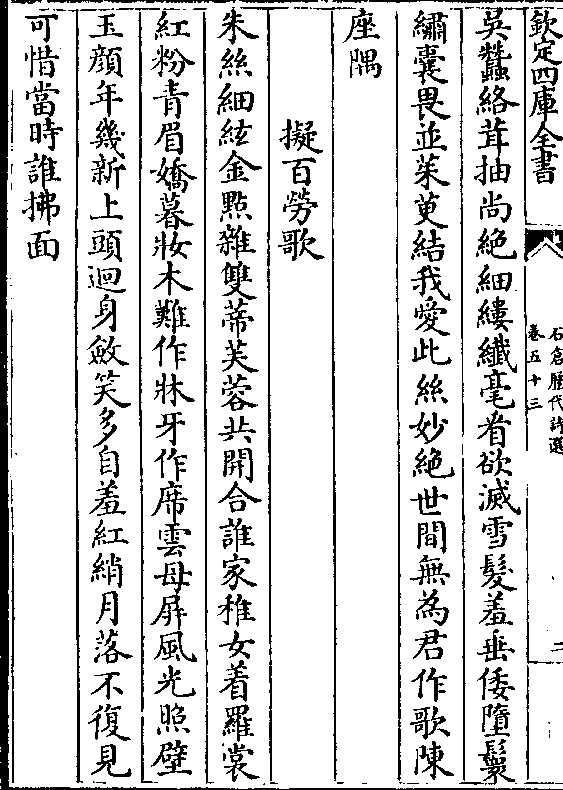 欽定四庫全書
石倉歷代詩選
卷五十三
二
吳蠶絡茸抽尚絕細縷纖毫看欲滅雪髮羞垂倭墮鬟
繡囊畏並茱萸結我愛此絲妙絕世間無為君作歌陳
座隅
擬百勞歌
朱絲細絃金點雜雙蒂芙蓉共開合誰家稚女着羅裳
紅粉青眉嬌暮妝木難作牀牙作席雲母屏風光照壁
玉顏年幾新上頭迴身斂笑多自羞紅綃月落不復見
可惜當時誰拂面